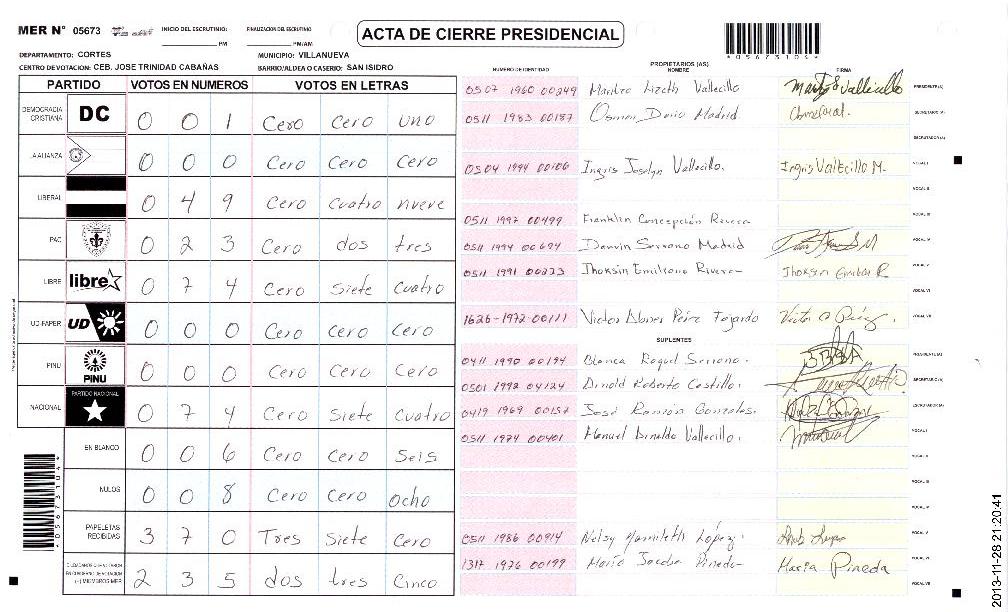 MER N° 05673 INICIO DEL ESCRUTINIO: ____ PM FINALIZACION DEL ESCRUTINIO ____ PM/AM
ACTA DE CIERRE PRESIDENCIAL
*05673104*
DEPARTAMENTO: CORTES MUNICIPIO: VILLANUEVA
CENTRO DE VOTACION: CEB. JOSE TRINIDAD CABAÑAS BARRIO/ALDEA O CASERIO: SAN ISIDRO
PARTIDO VOTOS EN NUMEROS VOTOS EN LETRAS
DEMOCRACIA CRISTIANA DC 0 0 1 Cero Cero Uno
LA ALIANZA 0 0 0 Cero Cero Cero
LIBERAL 0 4 9 Cero Cuatro nueve
PAC 0 2 3 Cero dos tres
LIBRE libre 0 7 4 Cero Siete Cuatro
UD-FAPER UD 0 0 0 Cero Cero Cero
PINU PINU 0 0 0 Cero Cero Cero
NACIONAL PARTIDO NACIONAL 0 7 4 Cero Siete Cuatro
EN BLANCO 0 0 6 Cero Cero Seis
NULOS 0 0 8 Cero Cero ocho
PAPELETAS RECIBIDAS 3 7 0 Tres Siete Cero
(+) MIEMBROS MER 2 3 5 dos tres Cinco
PROPIETARIOS (AS)
NUMERO DE IDENTIDAD NOMBRE FIRMA
0507 1960 00249 Lizeth Vallecillo PRESIDENTE(A)
0511 1983 00187 Osman Dario Madrid SECRETARIO(A)
ESCRUTADOR(A)
0504 1994 00106 Ingris Joselyn Vallecillo. Ingris Vallecillo M. VOCAL I
VOCAL II
0511 1997 00499 Franklin Concepción Rivera VOCAL III
0511 1994 00694 Danvin Serrano Madrid VOCAL IV
0511 1991 00223 Jhoksin Emiliano Rivera Jhoksin R VOCAL V
VOCAL VI
1626-1972-00111 Victor Abner Pérez Fajardo VOCAL VII
SUPLENTES
0411 1990 00194 Blanca Raquel Serrano. PRESIDENTE(A)
0501 1992 04124 Arnold Roberto Castillo. SECRETARIO(A)
0419 1969 00157 José Ramón Gonzales. ESCRUTADOR(A)
0511 1974 00401 Manuel Arnaldo Vallecillo. VOCAL I
VOCAL II
VOCAL III
0511 1986 00914 Nelsy López. VOCAL V
1317 1976 00199 María Jacoba Pineda María Pineda VOCAL VI
VOCAL VII
*05673104*
2013-11-28 21:20:41